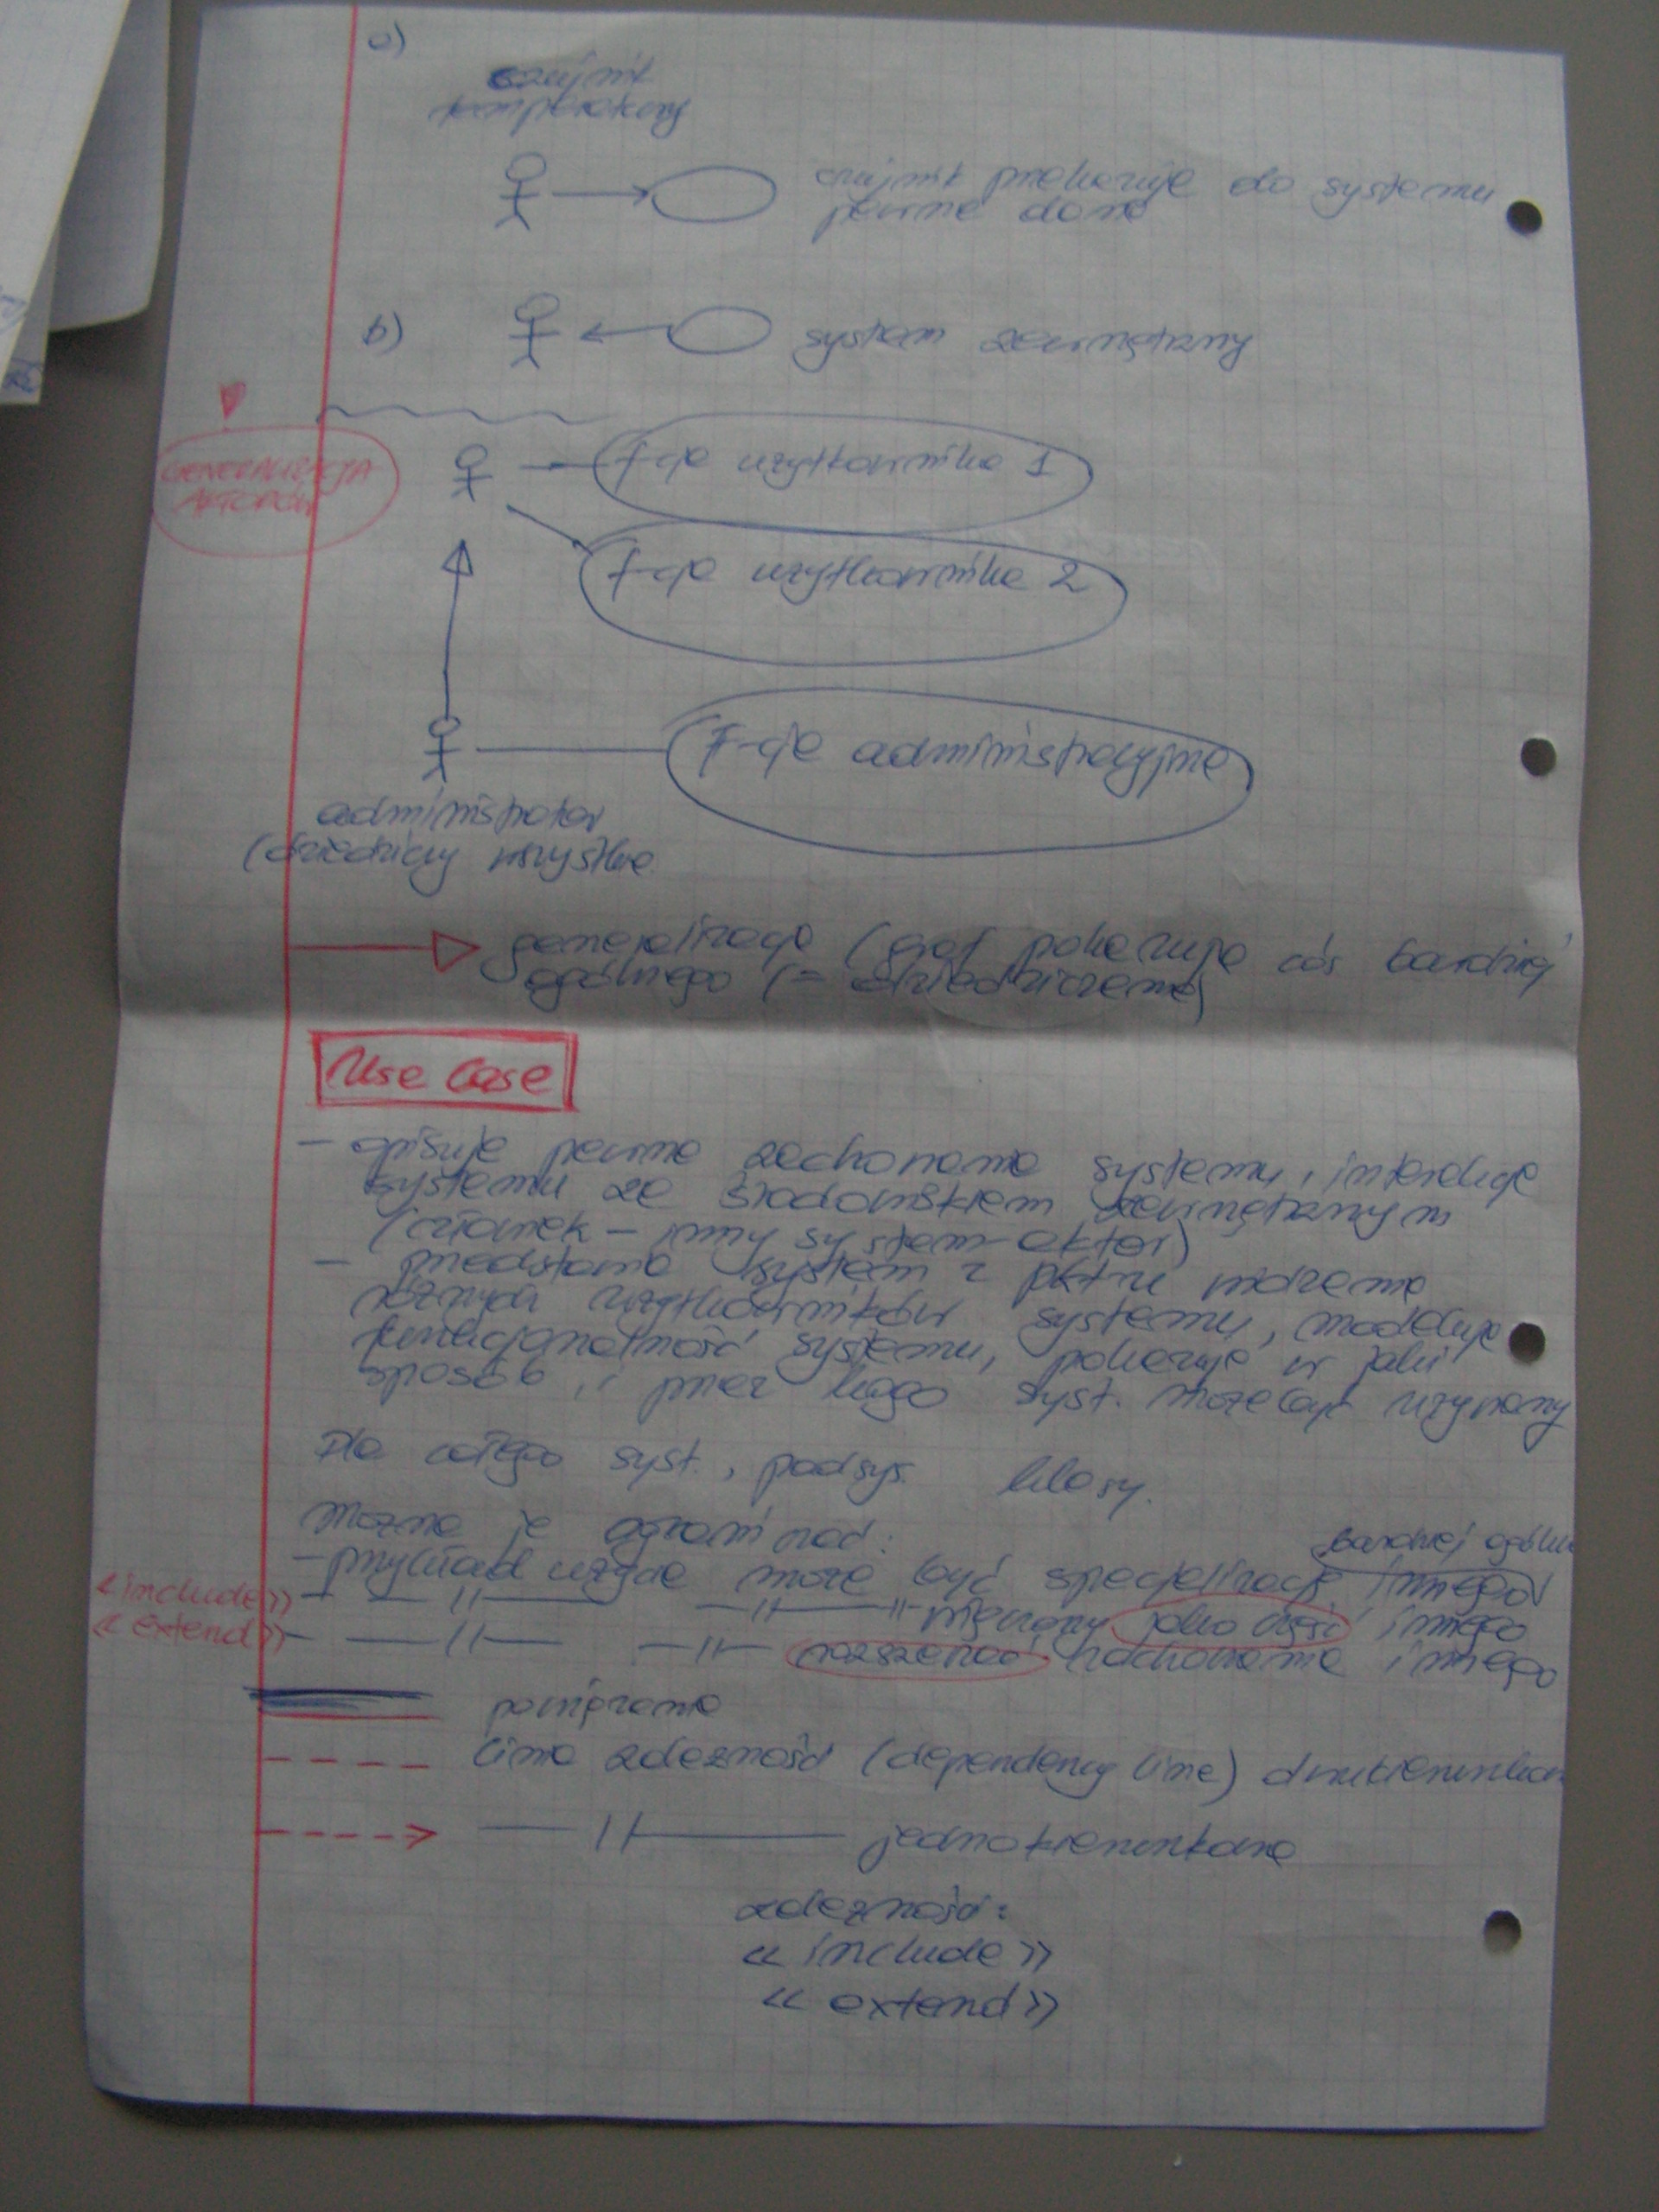 a)
czujnik
temperatury
czujnik przekazuje do systemu
pewne dane
b)
system zewnętrzny
GENERALIZACJA
AKTORÓW
f-cje użytkownika 1
f-cje użytkownika 2
F-cje administracyjne
administrator
(dziedziczy wszystkie
generalizacja (grot pokazuje coś bardziej
ogólnego (= dziedziczenie)
Use Case
- opisuje pewne zachowanie systemu, interakcje
systemu ze środowiskiem zewnętrznym
(człowiek - inny system - aktor)
- przedstawia system z pktu widzenia
różnych użytkowników systemu, modeluje
funkcjonalność systemu, pokazuje w jaki
sposób i przez kogo syst. może być używany
Dla całego syst., podsys. klasy.
Można je organizować:
bardziej ogóln
- przykład użycia może być specjalizacją innego
<<include>> - —||— —||— —||— włączony jako część innego
<<extend>> - —||— —||— rozszerzać zachowanie innego
powiązanie
linia zależności (dependency line) dwukierunkow
—||— jednokierunkowa
zależności:
<<include>>
<<extend>>